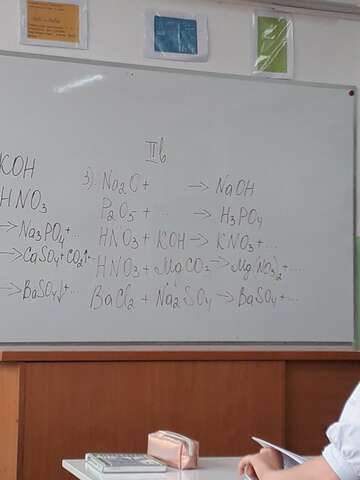 II в
KOH
HNO₃
→ Na₃PO₄ + ...
→ CaSO₄ + CO₂↑ + ...
→ BaSO₄↓ + ...
3) Na₂O + → NaOH
P₂O₅ + ... → H₃PO₄
HNO₃ + KOH → KNO₃ + ...
HNO₃ + MgCO₃ → Mg(NO₃)₂ + ...
BaCl₂ + Na₂SO₄ → BaSO₄ + ...